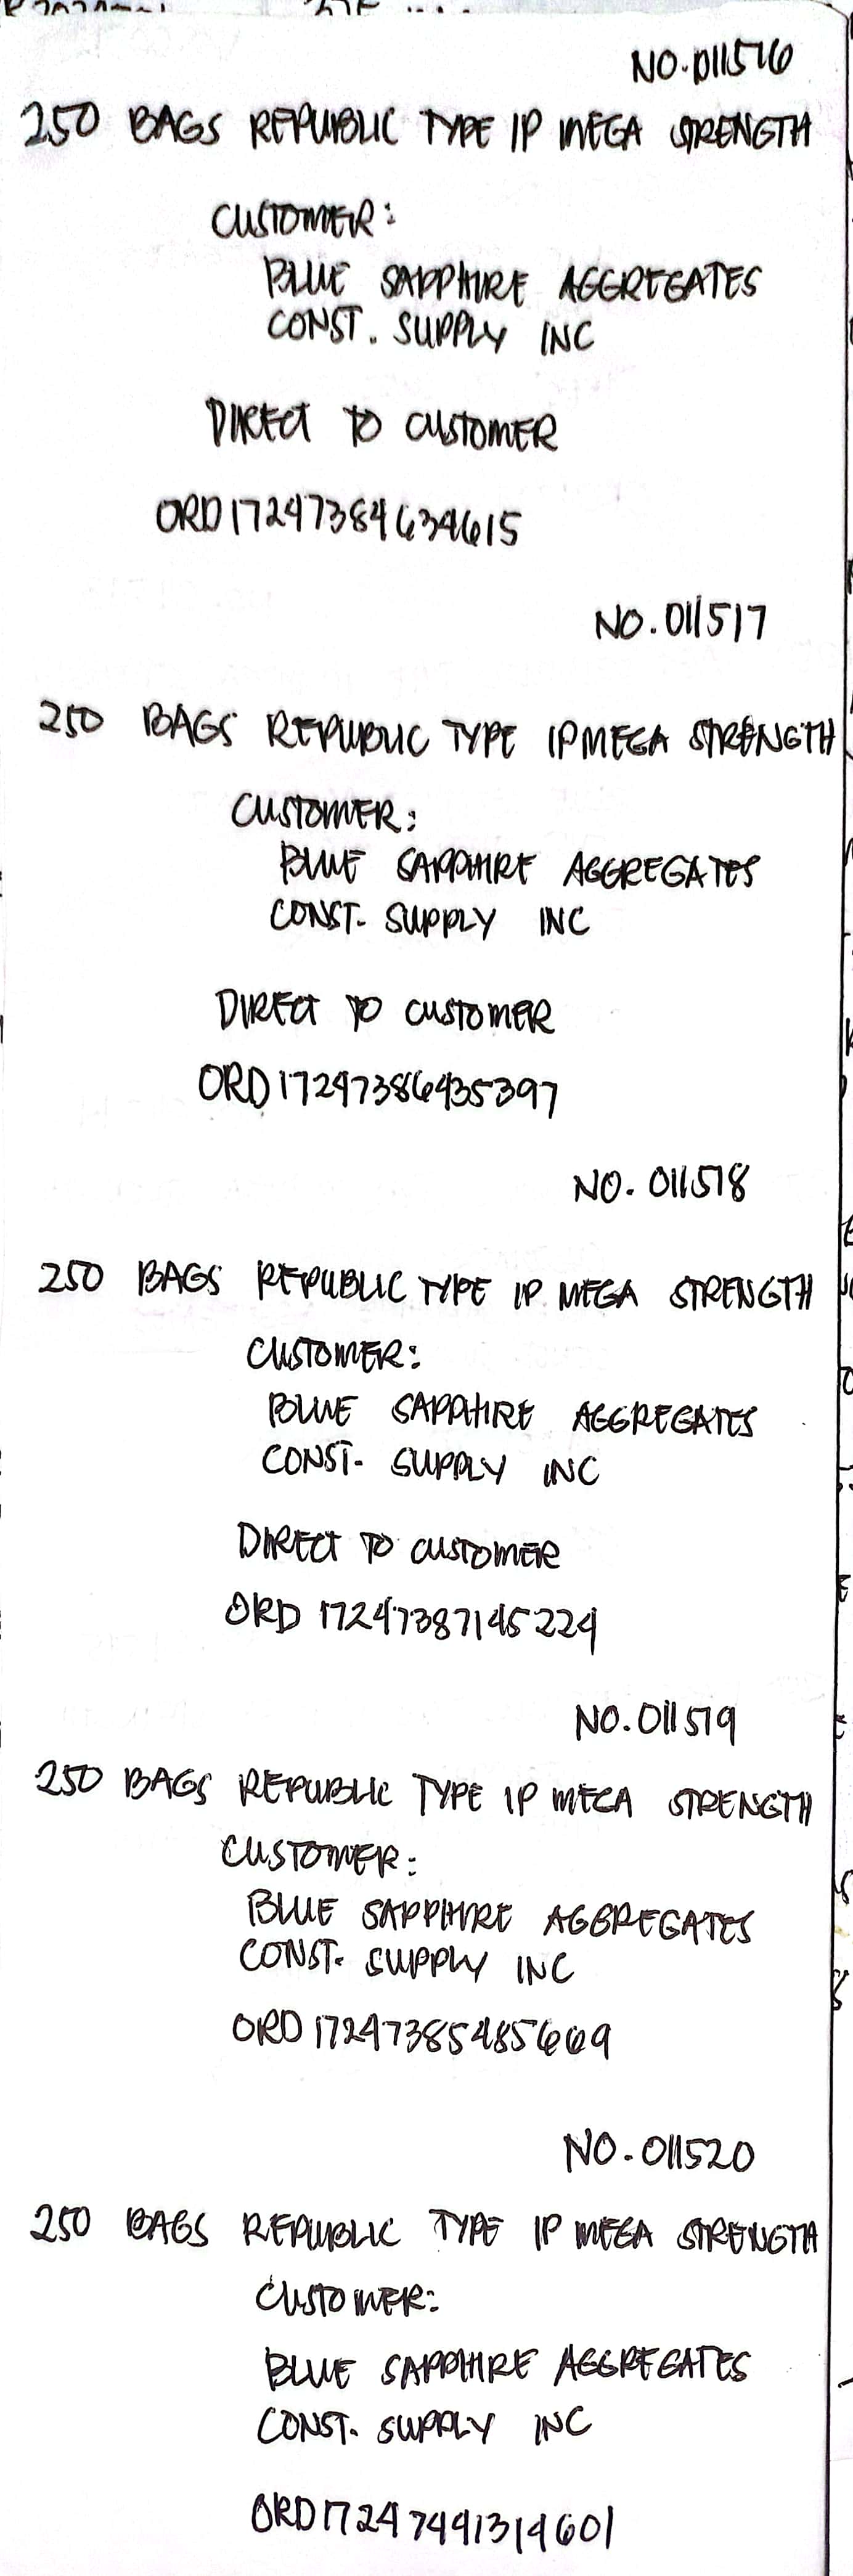 NO. 011516
250 BAGS REPUBLIC TYPE IP MEGA STRENGTH
CUSTOMER:
BLUE SAPPHIRE AGGREGATES
CONST. SUPPLY INC
DIRECT TO CUSTOMER
ORD17247384634615
NO. 011517
250 BAGS REPUBLIC TYPE IP MEGA STRENGTH
CUSTOMER:
BLUE SAPPHIRE AGGREGATES
CONST. SUPPLY INC
DIRECT TO CUSTOMER
ORD17247386435397
NO. 011518
250 BAGS REPUBLIC TYPE IP MEGA STRENGTH
CUSTOMER:
BLUE SAPPHIRE AGGREGATES
CONST. SUPPLY INC
DIRECT TO CUSTOMER
ORD 17247387145224
NO. 011519
250 BAGS REPUBLIC TYPE IP MEGA STRENGTH
CUSTOMER:
BLUE SAPPHIRE AGGREGATES
CONST. SUPPLY INC
ORD17247385485669
NO. 011520
250 BAGS REPUBLIC TYPE IP MEGA STRENGTH
CUSTOMER:
BLUE SAPPHIRE AGGREGATES
CONST. SUPPLY INC
ORD17247491314601